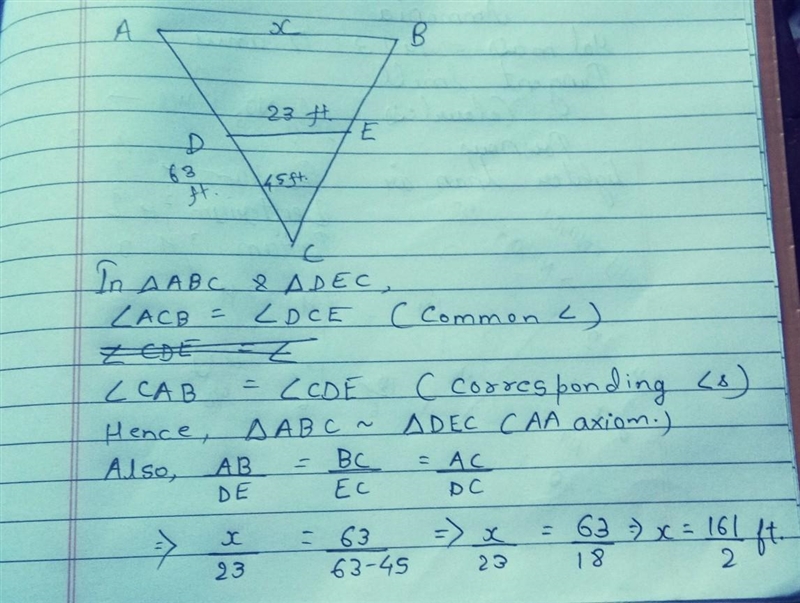 A x B
23 ft.
D E
63 ft. 45ft.
C
In △ABC & △DEC,
∠ACB = ∠DCE (Common ∠)
∠CDE = ∠
∠CAB = ∠CDE (corresponding ∠s)
Hence, △ABC ~ △DEC (AA axiom.)
Also, AB/DE = BC/EC = AC/DC
⇒ x/23 = 63/63-45 ⇒ x/23 = 63/18 ⇒ x = 161/2 ft.